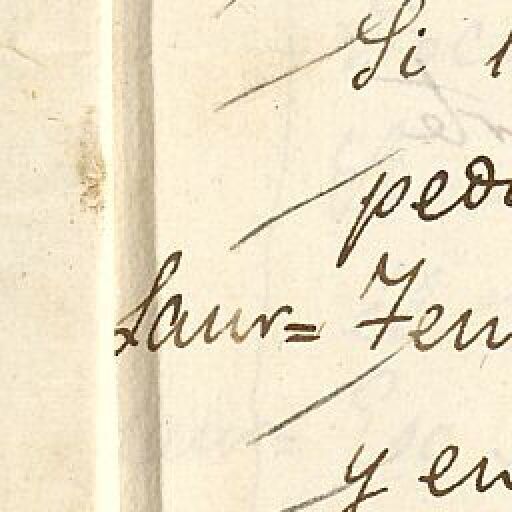 Si
ped
Laur= Ten
y en